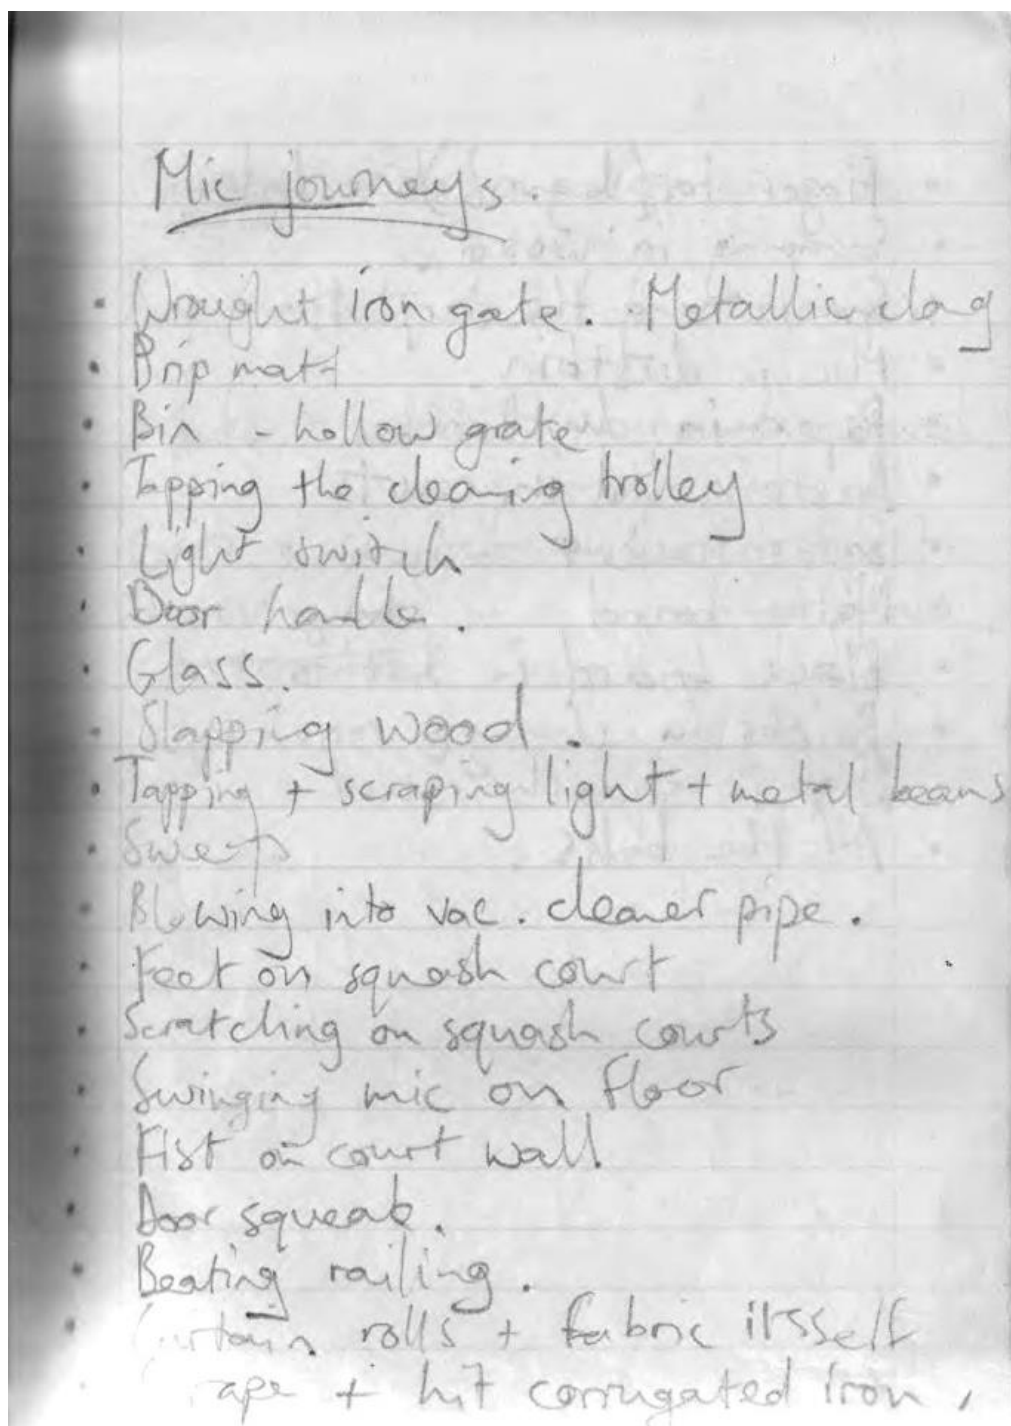 Mic journeys.
• Wrought iron gate. Metallic clag
• mat
• Bin - hollow grate
• Tapping the cleaning trolley
• Light switch
• Door handle.
• Glass.
• Slapping wood.
• Tapping + scraping light + metal beams
•
• Blowing into vac. cleaner pipe.
• Feet on squash court
• Scratching on squash courts
• Swinging mic on floor
• Fist on court wall
• Door squeak.
• Beating railing.
• rolls + fabric itsself
+ hit corrugated iron,